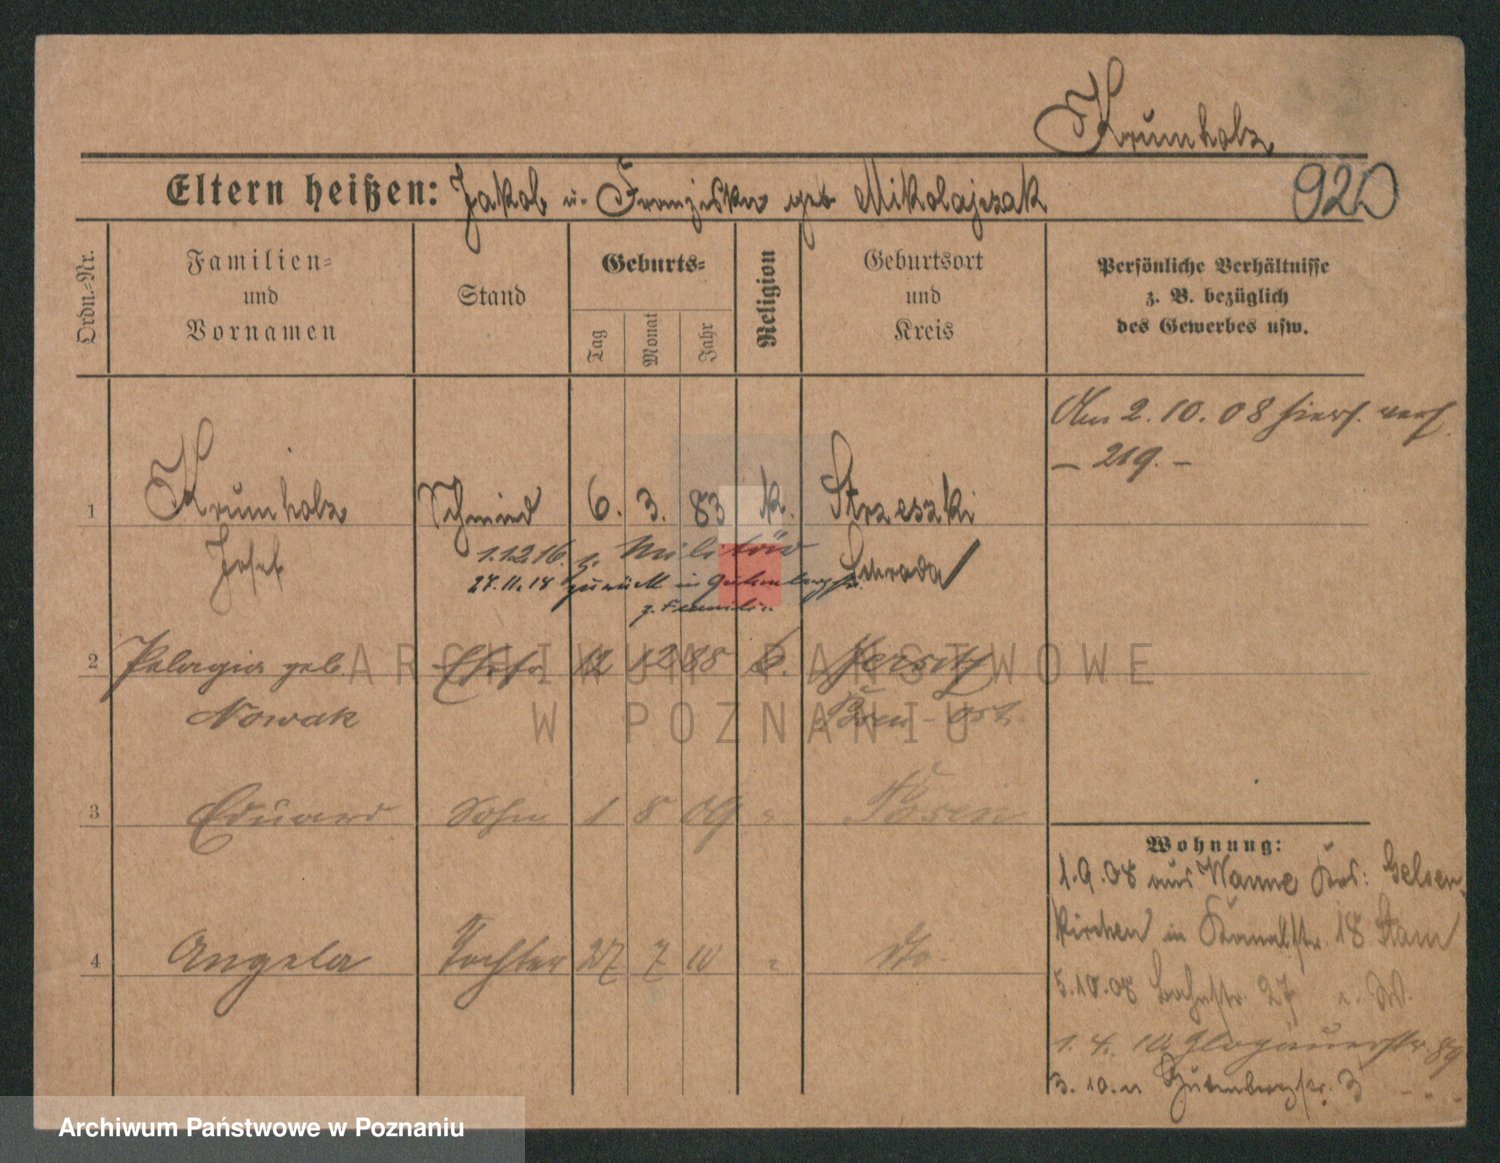 Krumholz
Eltern heißen: Jakob u. Franziska geb Mikolajczak
920
Ordn.-Nr.
Familien- und Vornamen
Stand
Geburts-
Tag
Monat
Jahr
Religion
Geburtsort und Kreis
Persönliche Verhältnisse z. B. bezüglich des Gewerbes usw.
Am 2. 10. 08 hiers. verh.
– 219. –
1 Krumholz Schmied 6. 3. 83 k. Strzeszki
Josef Schroda
1.12.16. z. Militär
27.11.18 zurück in Gutenbergstr.
z. Familie
2 Pelagia geb. Ehefr. 12 12 88 k. Jersitz
Nowak Posen-Ost
3 Eduard Sohn 1 8 09 " Posen
4 Angela Tochter 27 7 10 " do.
Wohnung:
1.9.08 aus Wanne Krs: Gelsen-
kirchen in Kanalstr. 18
5.10.08 Bachstr. 27
1. 4. 10 Glogauerstr 89
3. 10. 11 Gutenbergstr. 3
ARCHIWUM PAŃSTWOWE
W POZNANIU
Archiwum Państwowe w Poznaniu